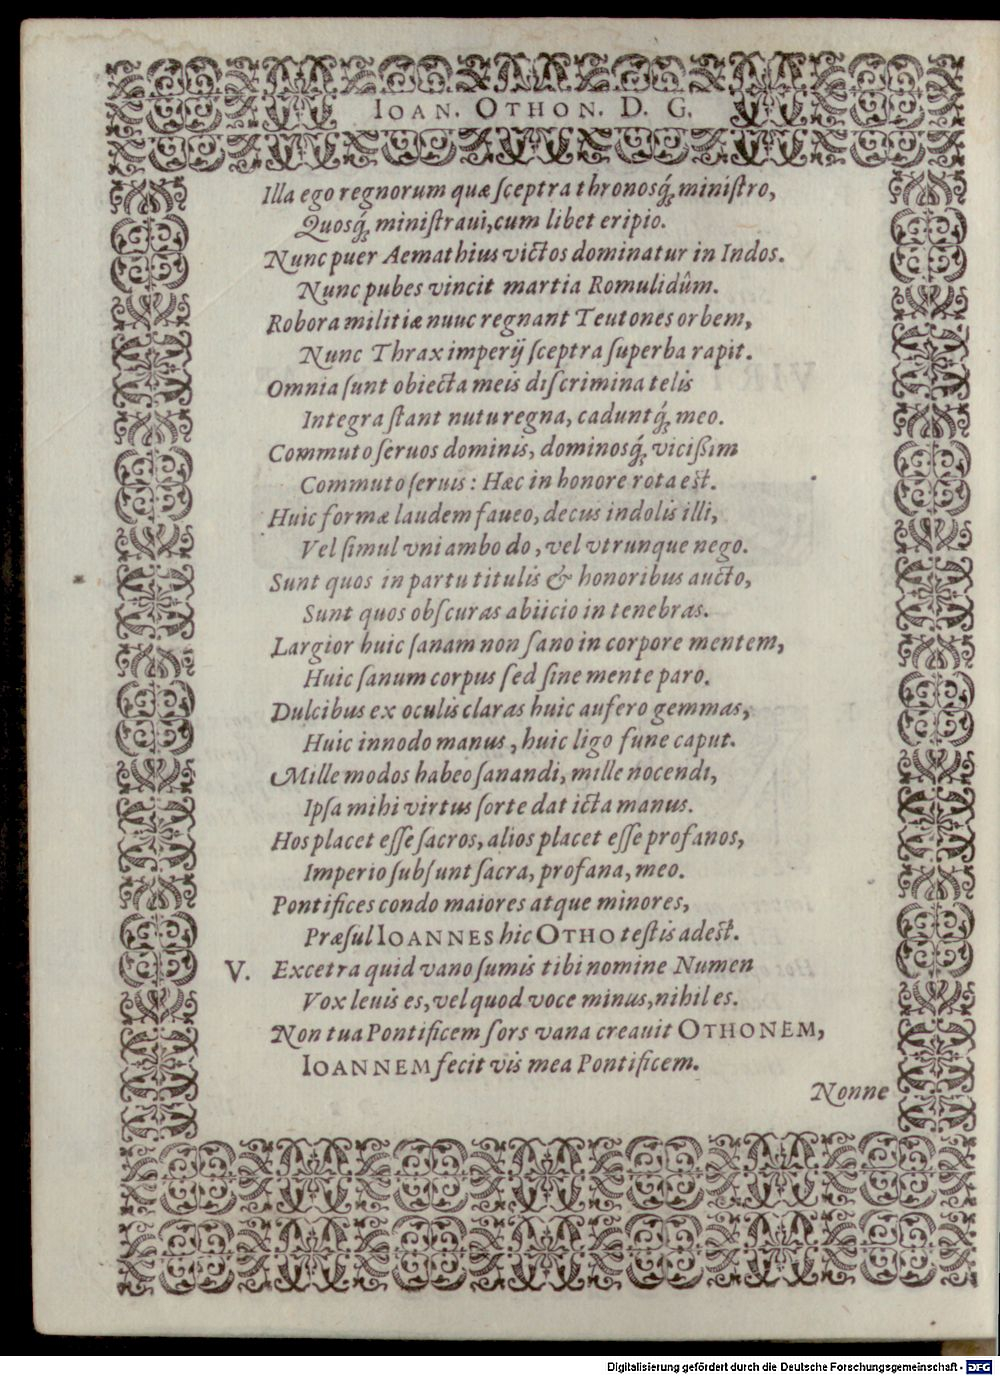 IOAN. OTHON. D. G.
Illa ego regnorum quæ ſceptra thronosq́; miniſtro,
Quosq́; miniſtraui, cum libet eripio.
Nunc puer Aemathius victos dominatur in Indos.
Nunc pubes vincit martia Romulidûm.
Robora militiæ nuuc regnant Teutones orbem,
Nunc Thrax imperij ſceptra ſuperba rapit.
Omnia ſunt obiecta meis diſcrimina telis
Integra ſtant nutu regna, caduntq́; meo.
Commuto ſeruos dominis, dominosq́; vicißim
Commuto ſeruis: Hæc in honore rota est.
Huic formæ laudem faueo, decus indolis illi,
Vel ſimul vni ambo do, vel vtrunque nego.
Sunt quos in partu titulis & honoribus aucto,
Sunt quos obſcuras abiicio in tenebras.
Largior huic ſanam non ſano in corpore mentem,
Huic ſanum corpus ſed ſine mente paro.
Dulcibus ex oculis claras huic aufero gemmas,
Huic innodo manus, huic ligo fune caput.
Mille modos habeo ſanandi, mille nocendi,
Ipſa mihi virtus ſorte dat icta manus.
Hos placet eſſe ſacros, alios placet eſſe profanos,
Imperio ſubſunt ſacra, profana, meo.
Pontifices condo maiores atque minores,
Præſul IOANNES hic OTHO testis adest.
V. Excetra quid vano ſumis tibi nomine Numen
Vox leuis es, vel quod voce minus, nihil es.
Non tua Pontificem ſors vana creauit OTHONEM,
IOANNEM fecit vis mea Pontificem.
Nonne
Digitalisierung gefördert durch die Deutsche Forschungsgemeinschaft - DFG